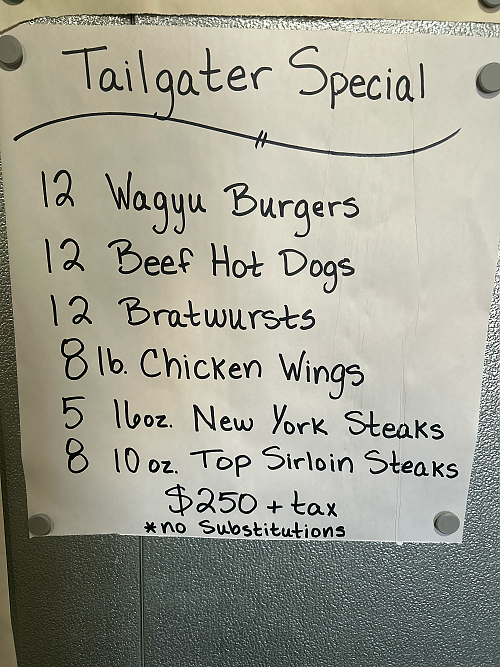 Tailgater Special
12 Wagyu Burgers
12 Beef Hot Dogs
12 Bratwursts
8 lb. Chicken Wings
5 16oz. New York Steaks
8 10 oz. Top Sirloin Steaks
$250 + tax
*no Substitutions